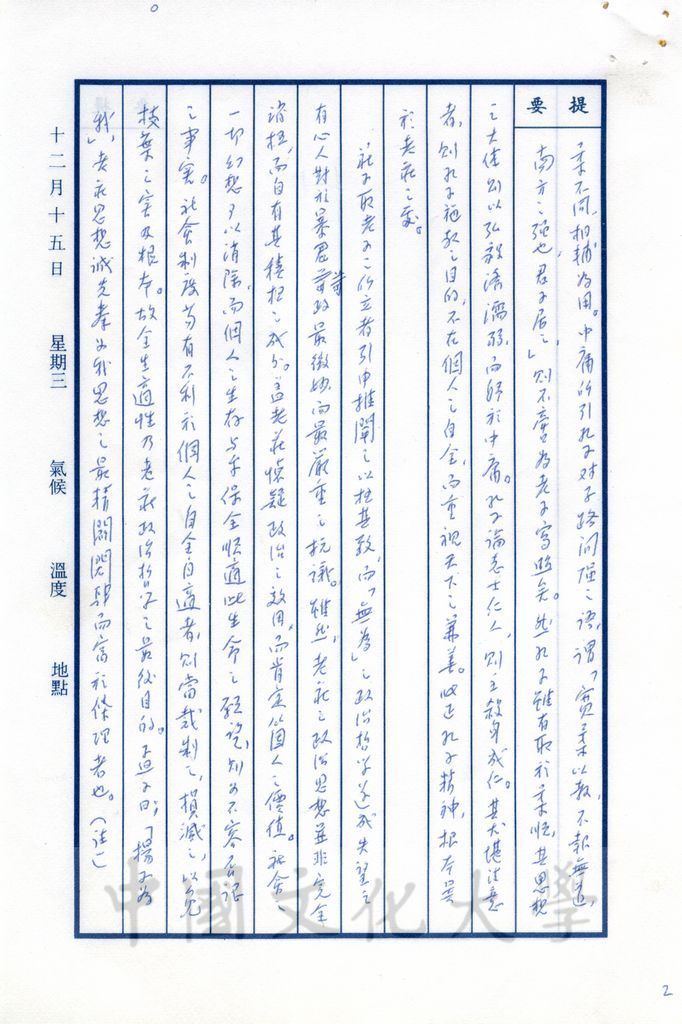 提要
柔不同,相輔為用。中庸所引孔子對子路問強之語,謂「寬柔以教,不報無道,
南方之強也,君子居之」則不啻為老子寫照矣。然孔子雖有取於柔順,其思想
之大体則以弘毅濟濡弱,而歸於中庸。孔子論志士仁人,則主殺身成仁。其尤堪注意
者,則孔子施教之目的,不在個人之自全,而重視天下之兼善。此正孔子精神,根本異
於老莊之處。
莊子取老子之所立者引申推闡之以極其致,而「無為」之政治哲學遂成失望之
有心人對於暴君苛政最微妙而最嚴重之抗議。雖然,老莊之政治思想並非完全
消極,而自有其積極之成分。蓋老莊懷疑政治之效用,而肯定個人之價值。社會之
一切幻想可以消除,而個人之生存與本保全順適此生命之願望,則為不容否認
之事實。社會制度苟有不利於個人之自全自適者,則當裁制之,損減之,以免
枝葉之害及根本。故全生適性乃老莊政治哲學之最後目的。孟子曰:「楊子為
我」,老莊思想誠先秦為我思想之最精闢閎肆而富於條理者也。(註一)
十二月十五日 星期三 氣候 溫度 地點
中國文化大學
2